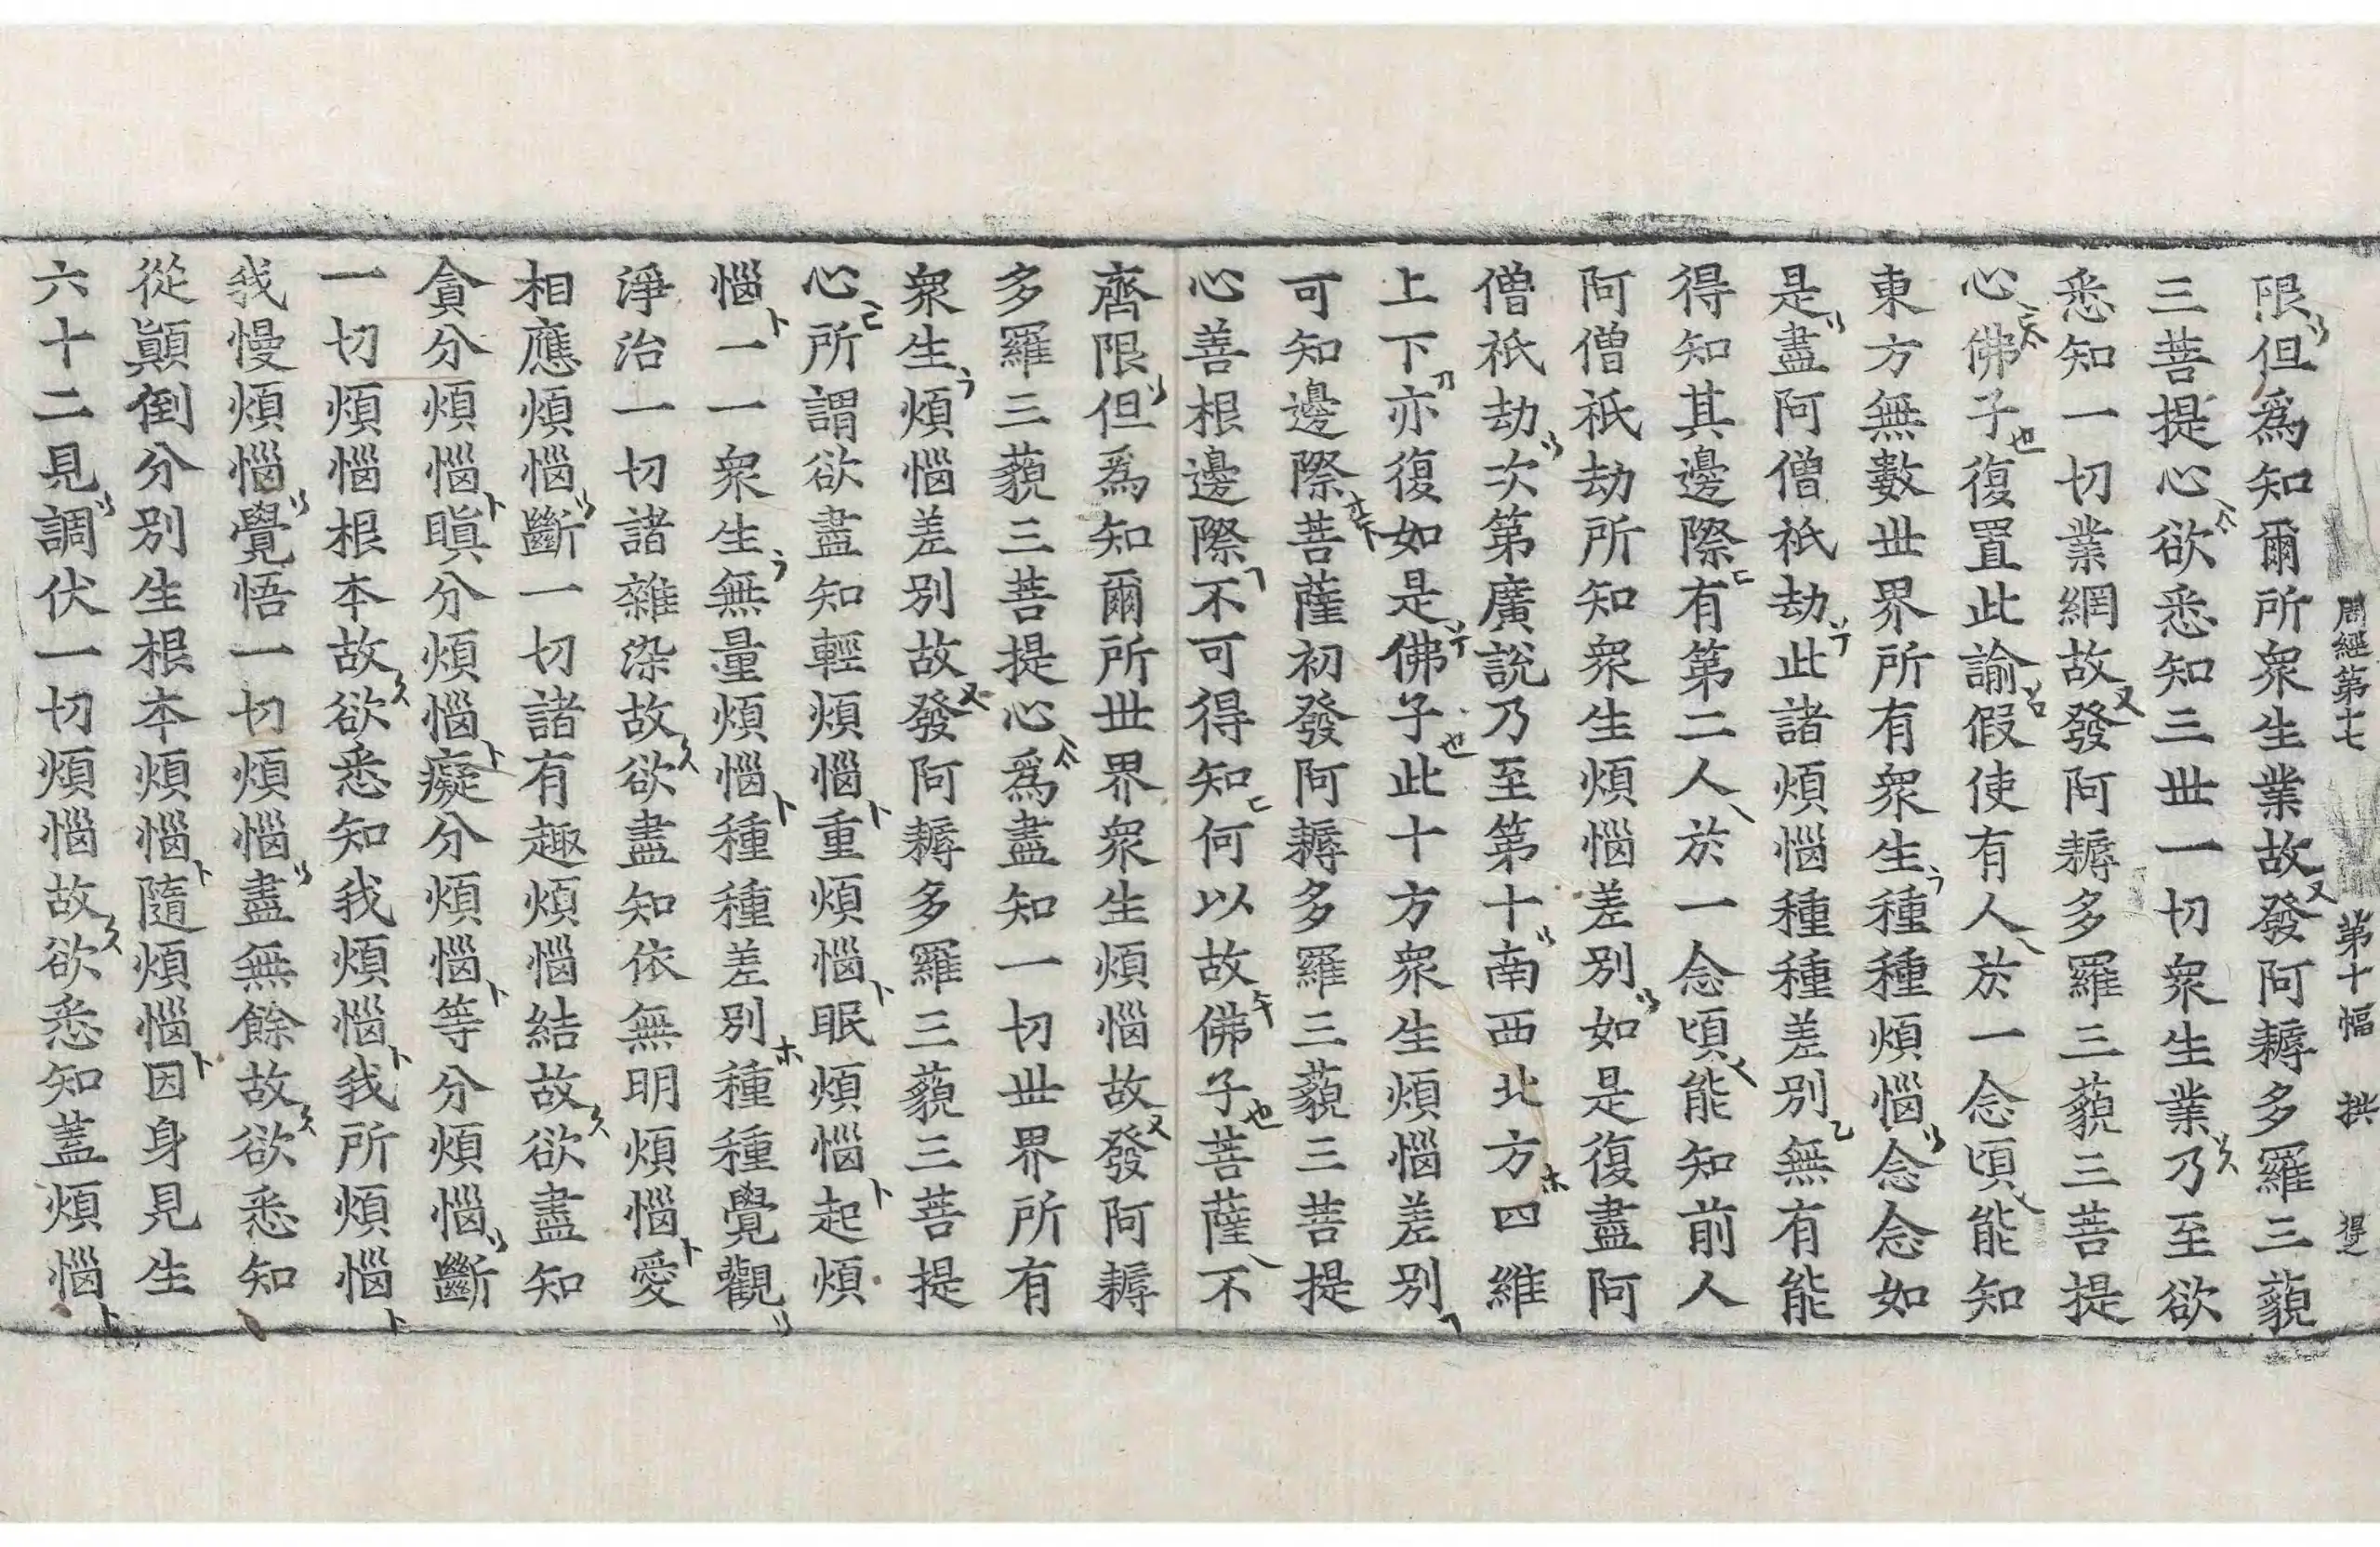 周經第十七 第十幅 拱 㝵
限但爲知爾所衆生業故發阿耨多羅三藐
三菩提心欲悉知三世一切衆生業乃至欲
悉知一切業網故發阿耨多羅三藐三菩提
心佛子復置此諭假使有人於一念頃能知
東方無數世界所有衆生種種煩惱念念如
是盡阿僧祇劫此諸煩惱種種差別無有能
得知其邊際有第二人於一念頃能知前人
阿僧祇劫所知衆生煩惱差別如是復盡阿
僧祇劫次第廣說乃至第十南西北方四維
上下亦復如是佛子此十方衆生煩惱差別
可知邊際菩薩初發阿耨多羅三藐三菩提
心善根邊際不可得知何以故佛子菩薩不
齊限但爲知爾所世界衆生煩惱故發阿耨
多羅三藐三菩提心爲盡知一切世界所有
衆生煩惱差別故發阿耨多羅三藐三菩提
心所謂欲盡知輕煩惱重煩惱眠煩惱起煩
惱一一衆生無量煩惱種種差別種種覺觀
淨治一切諸雜染故欲盡知依無明煩惱愛
相應煩惱斷一切諸有趣煩惱結故欲盡知
貪分煩惱瞋分煩惱癡分煩惱等分煩惱斷
一切煩惱根本故欲悉知我煩惱我所煩惱
我慢煩惱覺悟一切煩惱盡無餘故欲悉知
從顚倒分別生根本煩惱隨煩惱因身見生
六十二見調伏一切煩惱故欲悉知蓋煩惱